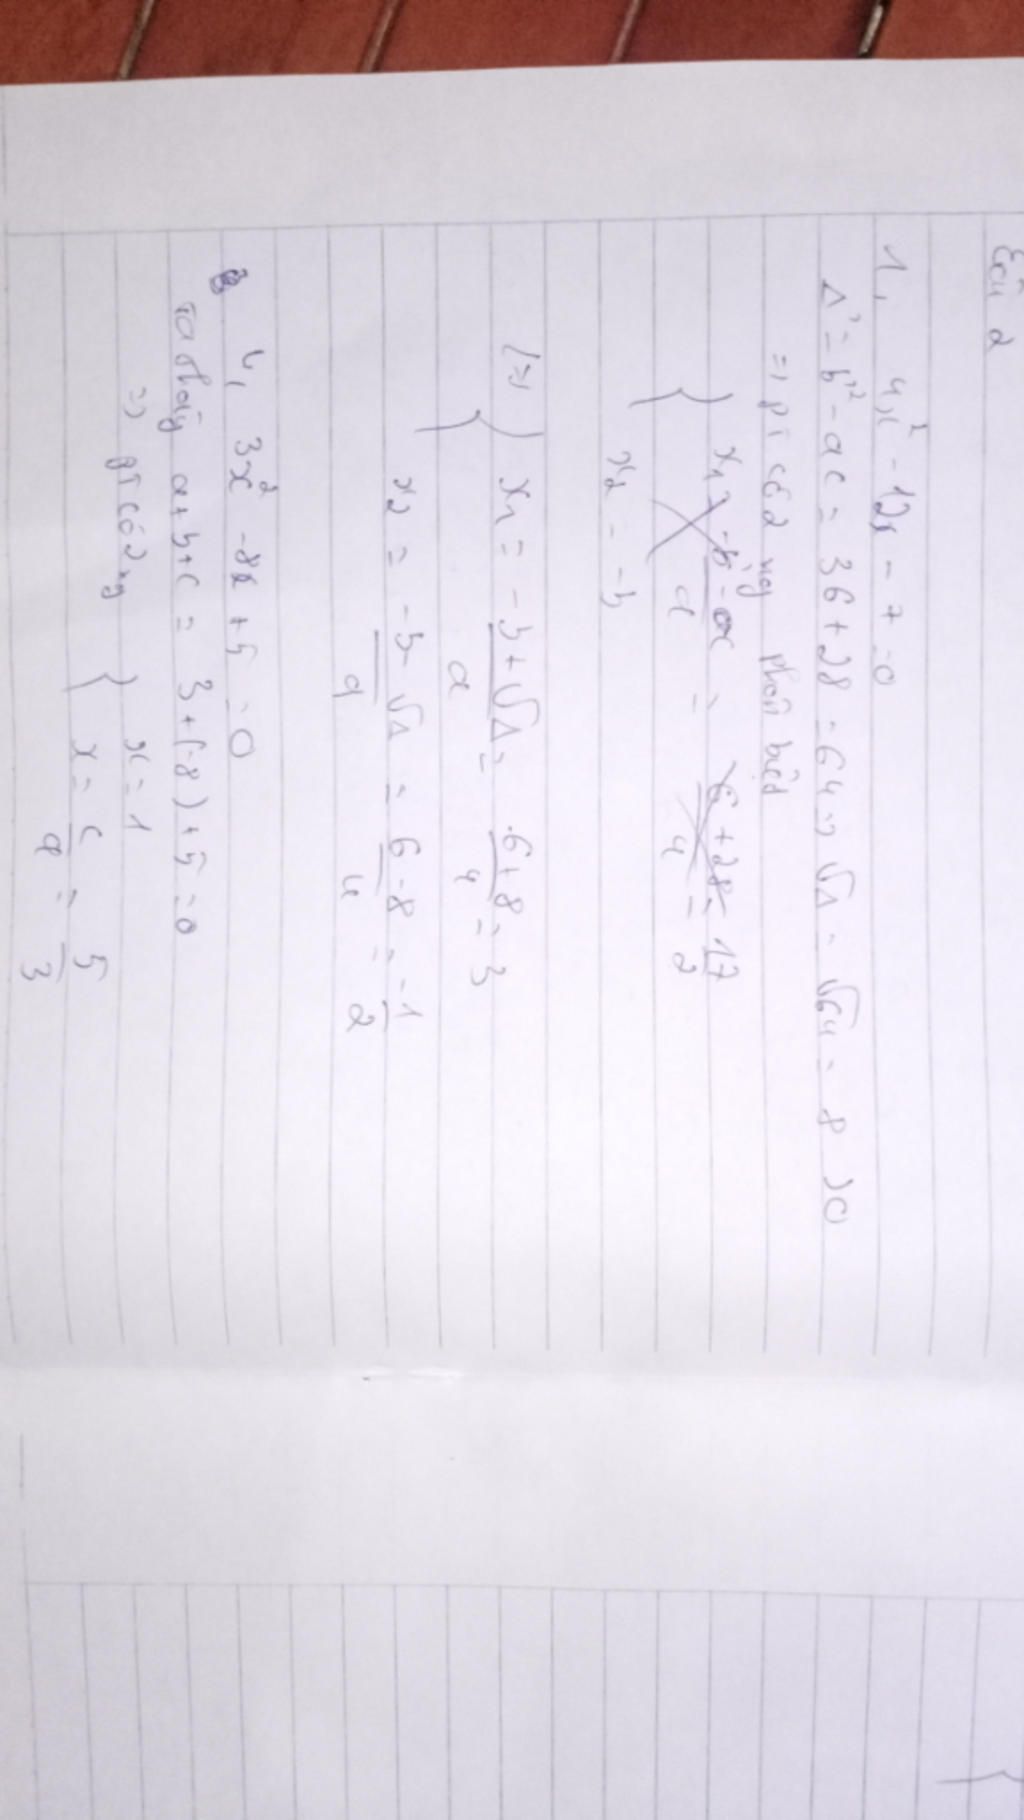 Câu 2
1, 4x² - 12x - 7 = 0
Δ' = b'² - ac = 36 + 28 = 64 => √Δ = √64 = 8 > 0
=> pT có 2 ng phân biệt
x₁ = -b' - ac / a = 6 + 28 / 4 = 17 / 2
x₂ = -b
(=>) x₁ = -b + √Δ / a = 6 + 8 / 4 = 3
x₂ = -b - √Δ / a = 6 - 8 / 4 = -1 / 2
4, 3x² - 8x + 5 = 0
Ta thấy a + b + c = 3 + (-8) + 5 = 0
=> pT có 2 ng x = 1
x = c / a = 5 / 3